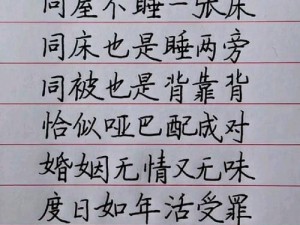 同屋不睡一张床
同床也是睡两旁
同被也是背靠背
恰似哑巴配成对
婚姻无情又无味
度日如年活受罪